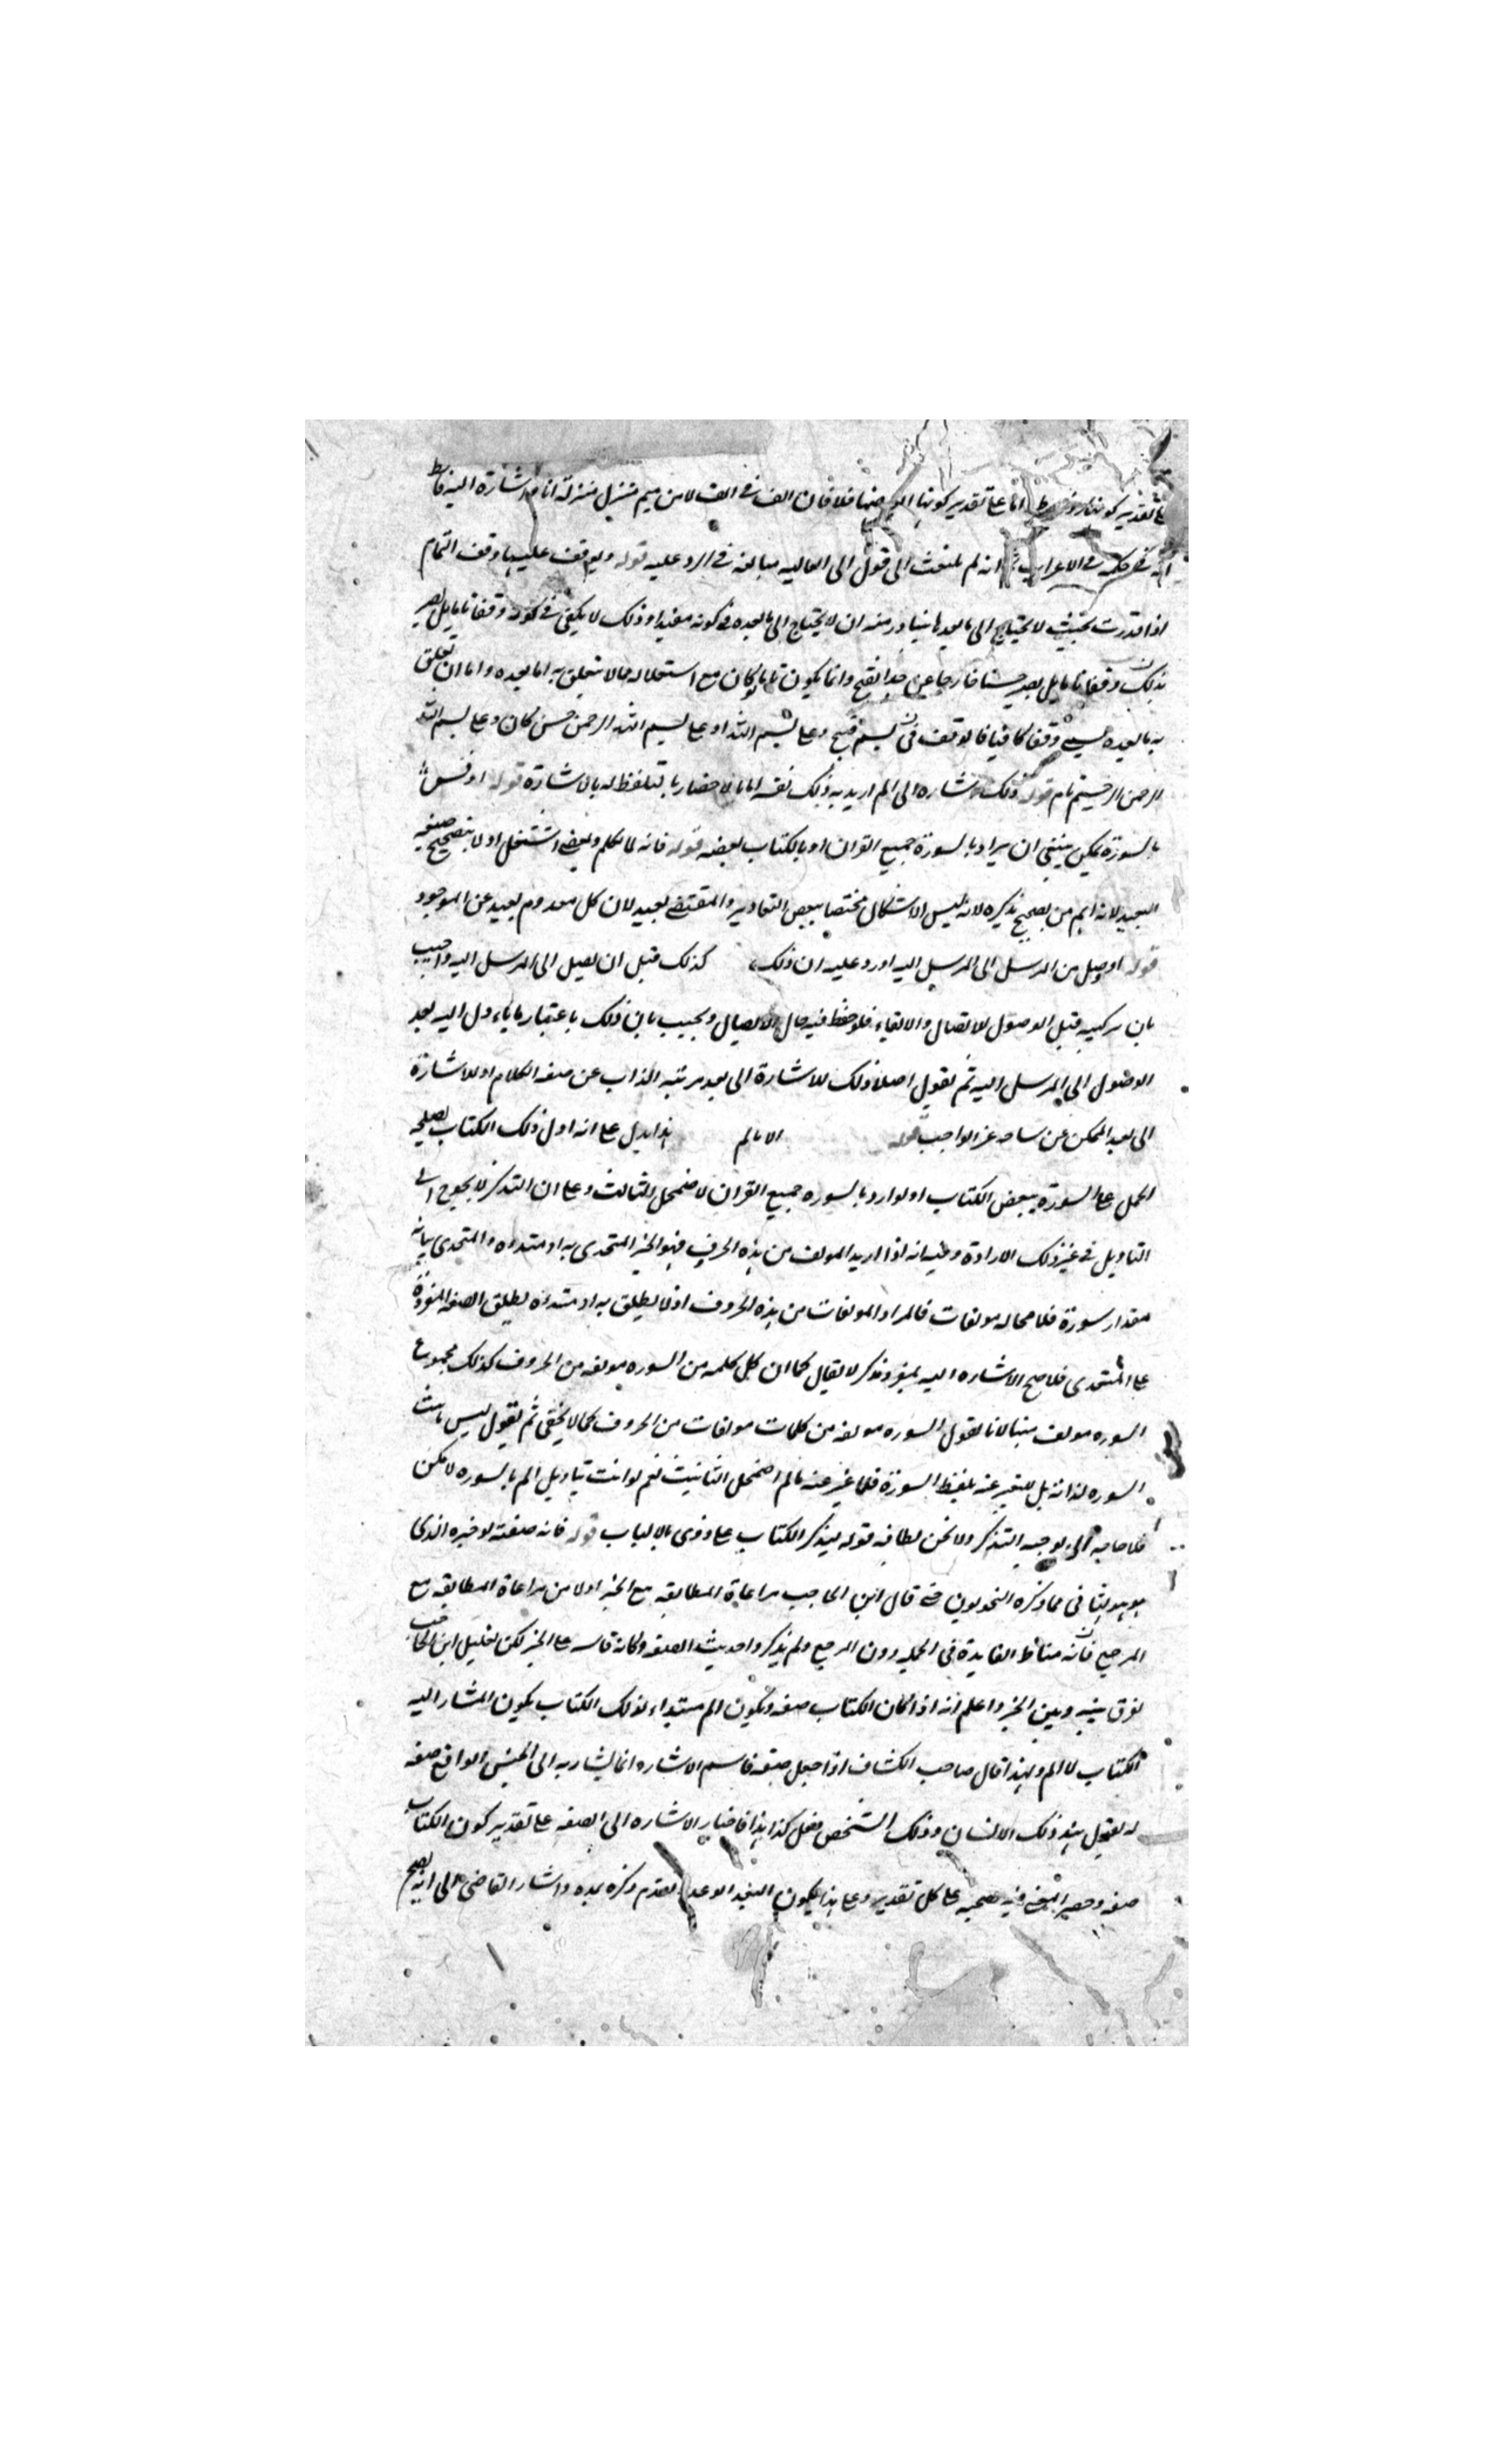 على تقدير كونها اما على تقدير كونها فلا فان الف في الف لام ميم تنزل منزلة انا فاشارة اليه
في حكمه في الاعراب انه لم يلتفت الى قول ابى العاليه مبالغه في الرد عليه قوله ويوقف عليها وقف التمام
اذا قدرت بحيث لا يحتاج الى ما بعدها يتبادر منه ان لا يحتاج الى ما بعده في كونه مفيدا وذلك لا يكفى في كونه وقفا تاما بل يصير
بذلك وقفا تاما بل يصير حسنا خارجا عن حد القبح وانما يكون تاما لو كان مع استقلاله مما لا يتعلق به ما بعده واما ان تعلق
به ما بعده يسمى وقفا كافيا فالوقف في بسم قبيح وعلى بسم الله او على بسم الله الرحمن حسن كاف وعلى بسم الله
الرحمن الرحيم تام قوله ذلك اشاره الى الم اريد به ذلك نفسه اما بالاحضار بالتلفظ له بالاشارة قوله او فسر
بالسورة يمكن ينبغي ان يراد بالسورة جميع القران او بالكتاب بعضه قوله فانه لما تكلم وتقضى اشتغل اولا بتصحيح صيغه
البعيد لانه اهم من تصحيح تذكيره لانه ليس الاشكال مختصا ببعض التقادير والمقتضى بعيد لان كل معدوم بعيد عن الموجود
قوله او وصل من المرسل الى المرسل اليه اورد عليه ان ذلك كذلك قبل ان يصل الى المرسل اليه واجيب
بان تركيبه قبل الوصول للاتصال والالقاء فلوحظ فيه حال الايصال ونجيب بان ذلك باعتبار ما يؤول اليه بعد
الوصول الى المرسل اليه ثم نقول اصلا ذلك للاشارة الى بعد مرتبه الذات عن صفه الكلام او للاشارة
الى بعد الممكن عن ساحه عز الواجب قوله الا بالم هذا يدل على انه اول ذلك الكتاب يصلح
الحمل على السورة ببعض الكتاب اولو اريد بالسوره جميع القران لاضمحل الثالث وعلى ان التذكير لا يحوج الى
التاويل في غير ذلك الارادة وفيه انه اذا اريد المولف من هذه الحروف فهو الخبر المتحدى به او مبتداه والمتحدى بيانه
مقدار سورة فلا محاله مولفات فالمراد المولفات من هذه الحروف اذ لا يطلق به او مبتداه يطلق الصفه المفردة
على المتحدى فلا صح الاشاره اليه بمفرد مذكر لا يقال كما ان كل كلمه من السوره مولفه من الحروف كذلك مجموع
السوره مولف منها لانا نقول السوره مولفه من كلمات مولفات من الحروف كما لا يخفى ثم نقول ليس تانيث
السوره لذاته بل للتعبير عنه بلفظ السورة فلما عبر عنه بالم اضمحل التانيث نعم لو انث بتاويل الم بالسوره لامكن
فلا حاجه الى توجيه التذكير ولا تخفى لطافه قوله بتذكير الكتاب على ذوى الالباب قوله فانه صفته او خبره الذى
هو هو ينافى مما ذكره النحويون حتى قال ابن الحاجب مراعاة المطابقه مع الخبر اولا من مراعاة المطابقه مع
المرجع فانه مناط الفايدة في الجمله دون المرجع ولم يذكروا حديث الصفه وكانه قاسه على الخبر لكن تعليل ابن الحاجب
يفرق بينه وبين الخبر واعلم انه اذا كان الكتاب صفه ويكون الم مبتداء لذلك الكتاب يكون المشار اليه
الكتاب لا الم ولهذا قال صاحب الكشاف اذا جعل صفه فاسم الاشاره انما يشار به الى الجنس الواقع صفه
له نقول هند ذلك الانسان وذلك الشخص فعل كذا هذا فاختار الاشاره الى الصفه على تقدير كون الكتاب
صفه وحصر فيه صحيه على كل تقدير وعلى هذا يكون البعيد الوعد لتقدم ذكره بعده واشار القاضي الى انه يصح